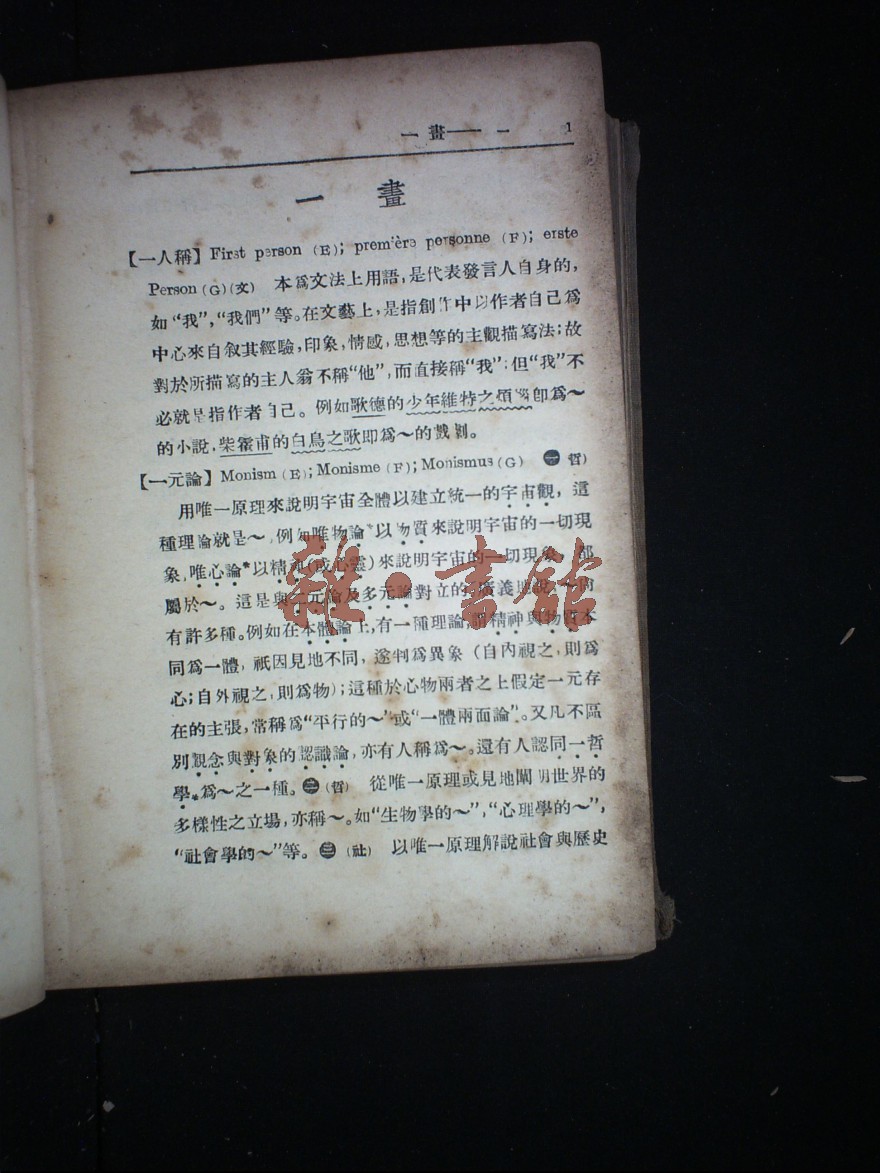 一畫——一 1
一 畫
【一人稱】First person (E); première personne (F); erste
Person (G) (文) 本爲文法上用語,是代表發言人自身的,
如“我”,“我們”等。在文藝上,是指創作中以作者自己爲
中心來自叙其經驗,印象,情感,思想等的主觀描寫法;故
對於所描寫的主人翁不稱“他”,而直接稱“我”;但“我”不
必就是指作者自己。例如歌德的少年維特之煩惱卽爲～
的小說,柴霍甫的白鳥之歌卽爲～的戲劇。
【一元論】Monism (E); Monisme (F); Monismus (G) ㊀ (哲)
用唯一原理來說明宇宙全體以建立統一的宇宙觀,這
種理論就是～,例如唯物論*以物質來說明宇宙的一切現
象,唯心論*以精神(或心靈)來說明宇宙的一切現象,都
屬於～。這是與二元論及多元論對立的。廣義地說,一內
有許多種。例如在本體論上,有一種理論,謂精神與物質本
同爲一體,祇因見地不同,遂判爲異象(自內視之,則爲
心;自外視之,則爲物);這種於心物兩者之上假定一元存
在的主張,常稱爲“平行的～”或“一體兩面論”。又凡不區
別觀念與對象的認識論,亦有人稱爲～。還有人認同一哲
學*爲～之一種。㊁ (哲) 從唯一原理或見地闡明世界的
多樣性之立場,亦稱～。如“生物學的～”,“心理學的～”,
“社會學的～”等。㊂ (社) 以唯一原理解說社會與歷史
雜·書館